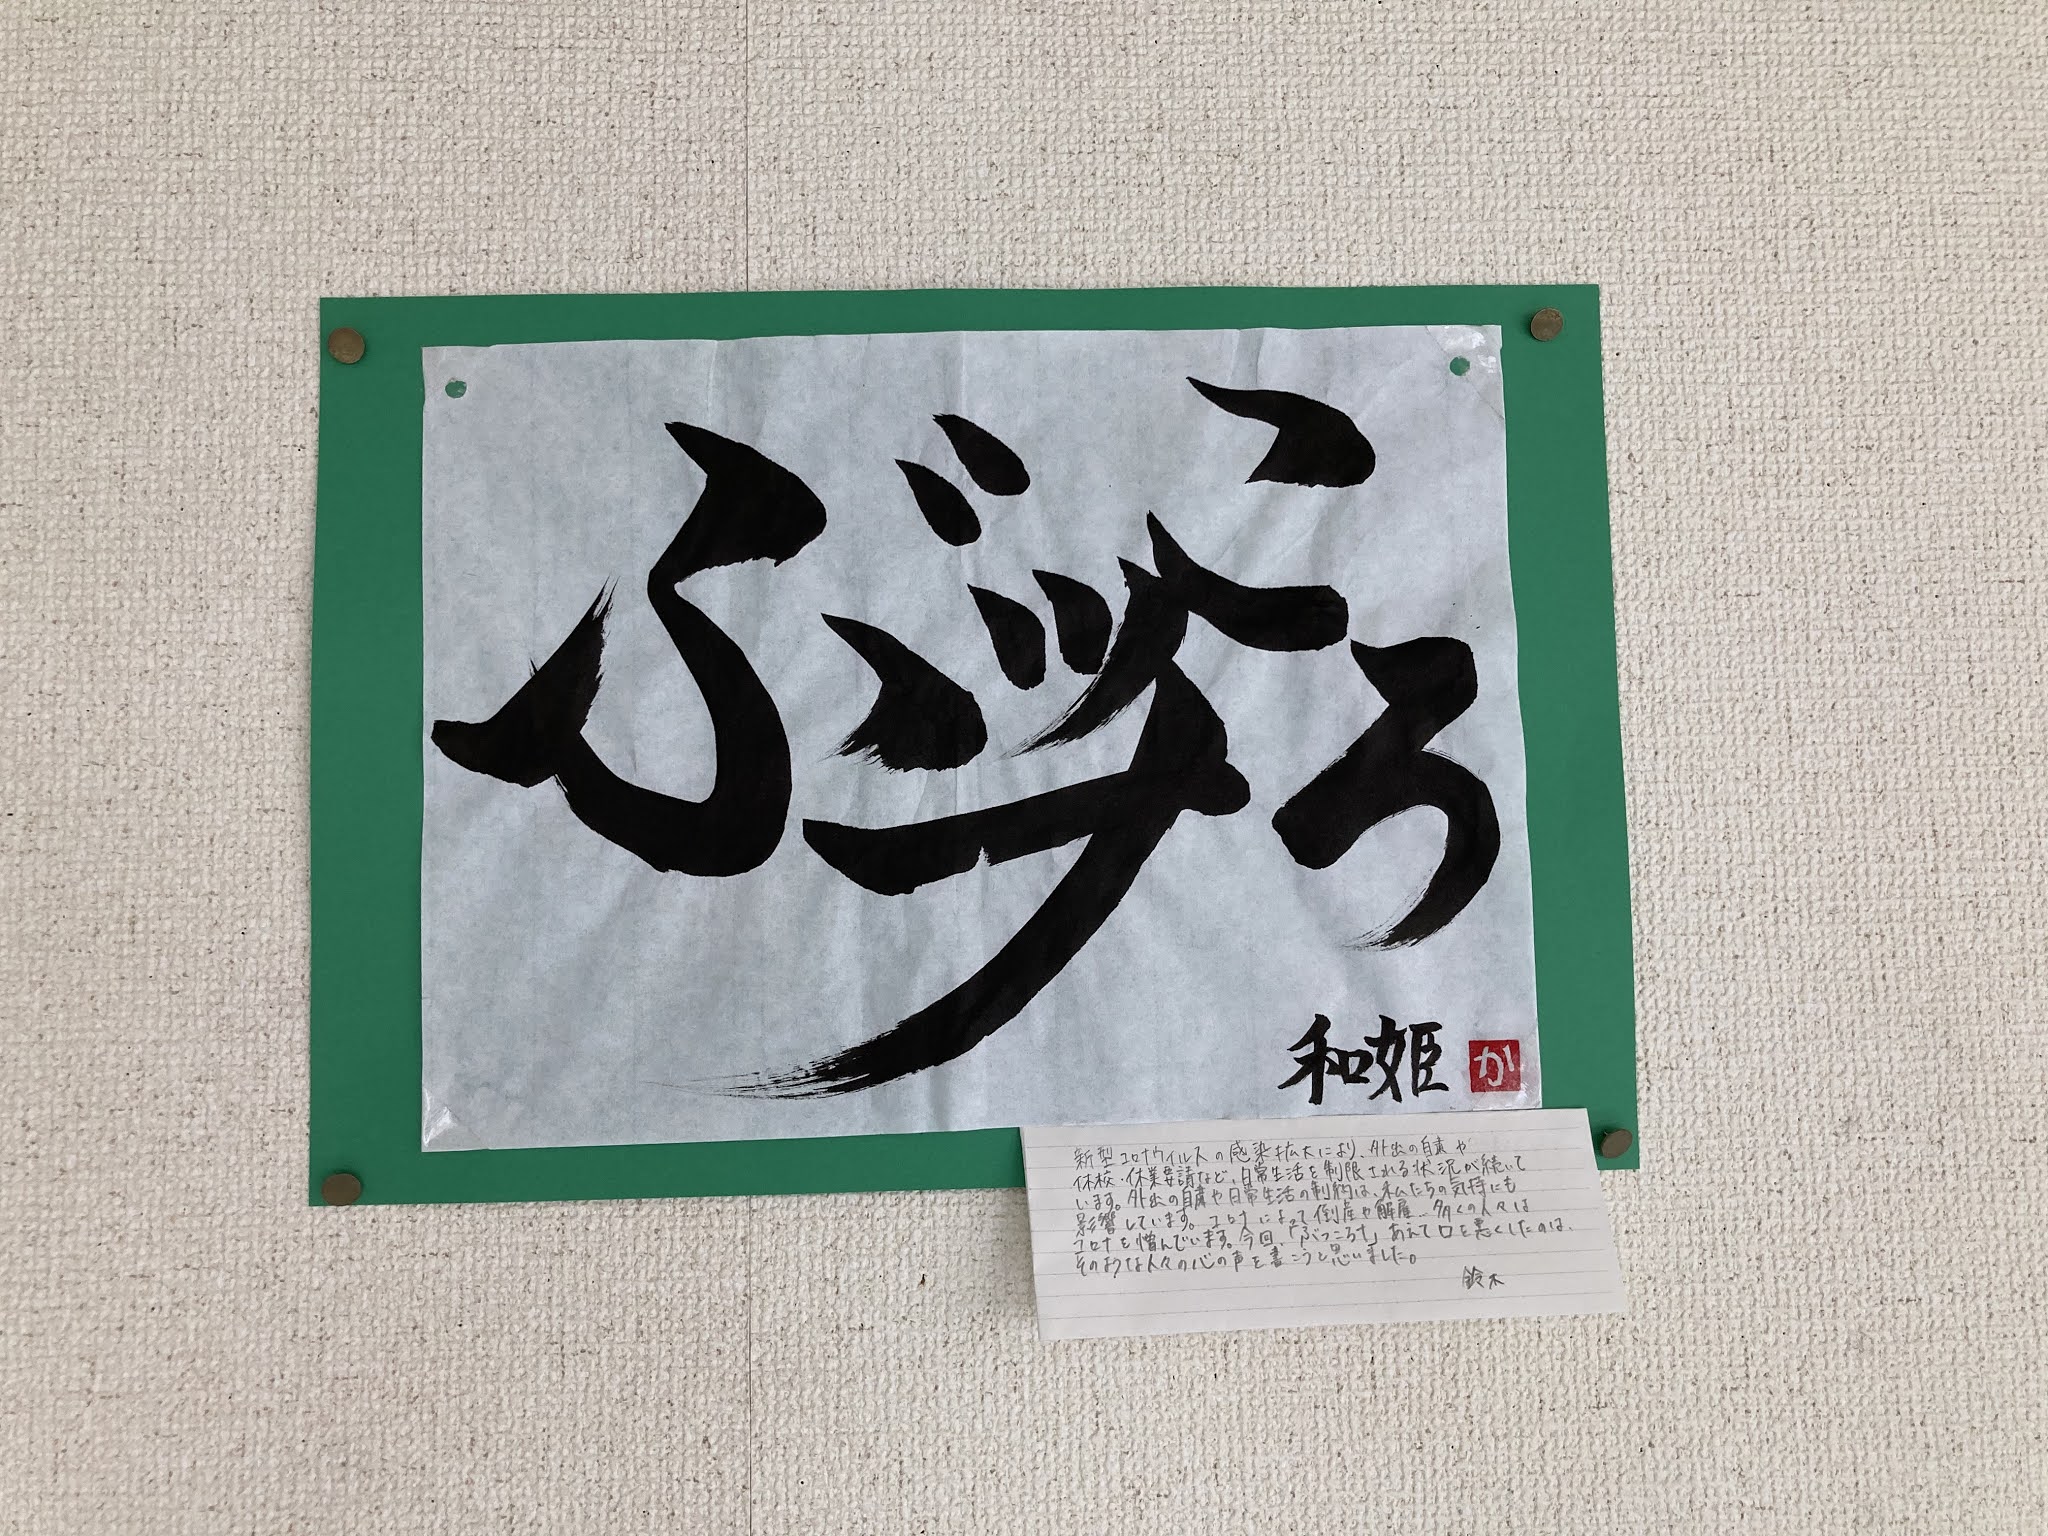 ぶッころナ
和姫
か
新型コロナウイルスの感染拡大により、外出の自粛や
休校・休業要請など、日常生活を制限される状況が続いて
います。外出の自粛や日常生活の制約は、私たちの気持にも
影響しています。コロナによって倒産や解雇…多くの人々は
コロナを憎んでいます。今回、「ぶっころナ」あえて口を悪くしたのは、
そのような人々の心の声を書こうと思いました。
鈴木